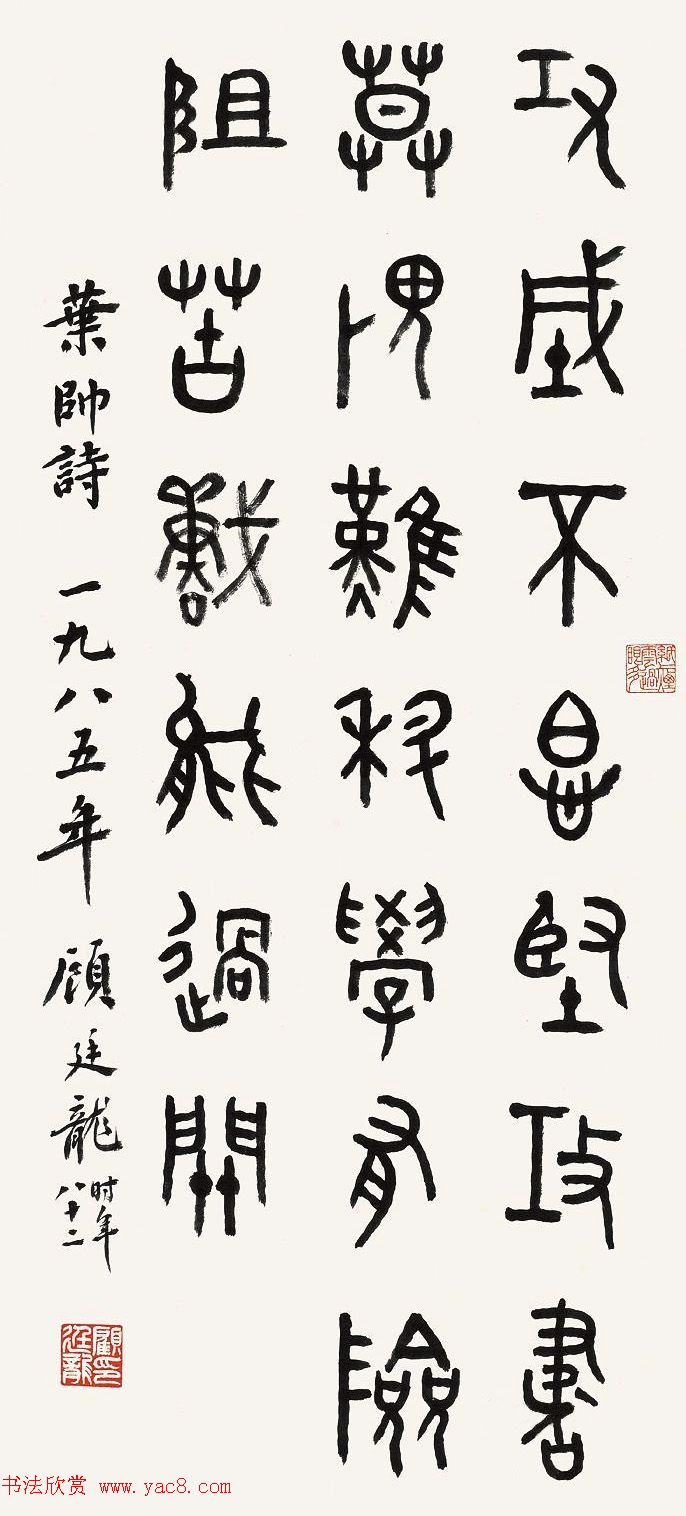 攻城不怕堅攻書
莫畏難科學有險
阻苦戰能過關
葉帥詩 一九八五年 顧廷龍 时年八十二
顧廷龍印
书法欣赏 www.yac8.com